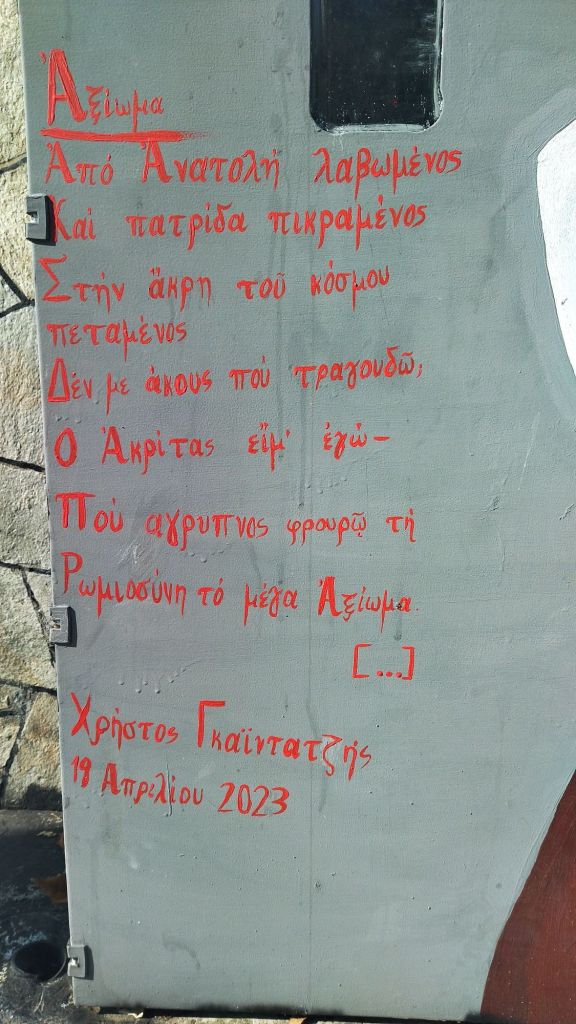 Ἀξίωμα
Ἀπό Ἀνατολή λαβωμένος
Καί πατρίδα πικραμένος
Στήν ἄκρη τοῦ κόσμου
πεταμένος
Δέν με ἀκους πού τραγουδῶ;
Ο Ἀκρίτας εἶμ' ἐγώ –
Πού αγρυπνος φρουρῷ τή
Ρωμιοσύνη τό μέγα Ἀξίωμα.
[...]
Χρήστος Γκαϊντατζής
19 Απριλίου 2023